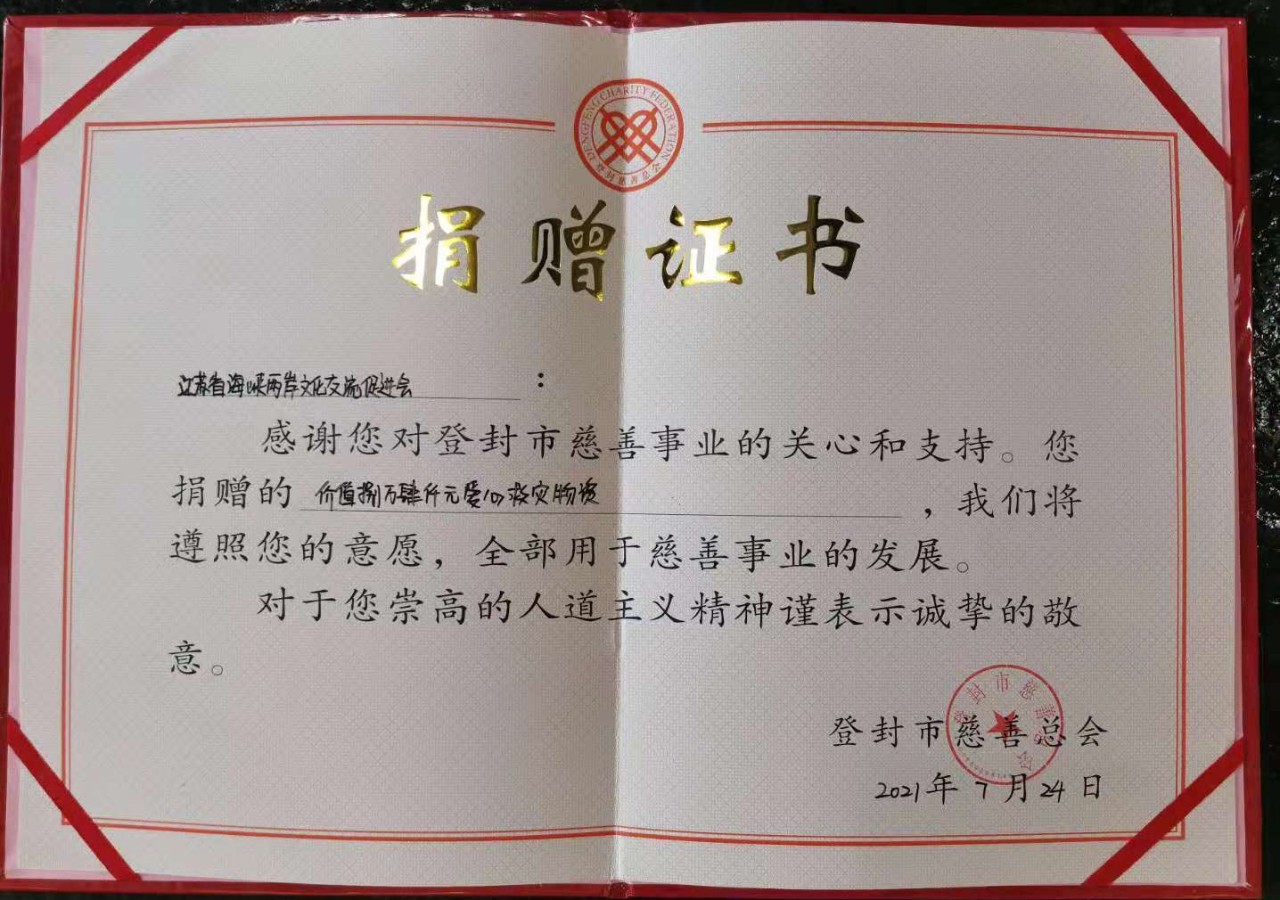 DENGFENG CHARITY FEDERATION
登封慈善总会
捐赠证书
江苏省海峡两岸文化交流促进会：
感谢您对登封市慈善事业的关心和支持。您
捐赠的 价值捌万肆仟元爱心救灾物资，我们将
遵照您的意愿，全部用于慈善事业的发展。
对于您崇高的人道主义精神谨表示诚挚的敬
意。
登封市慈善总会
登封市慈善总会
2021年7月24日